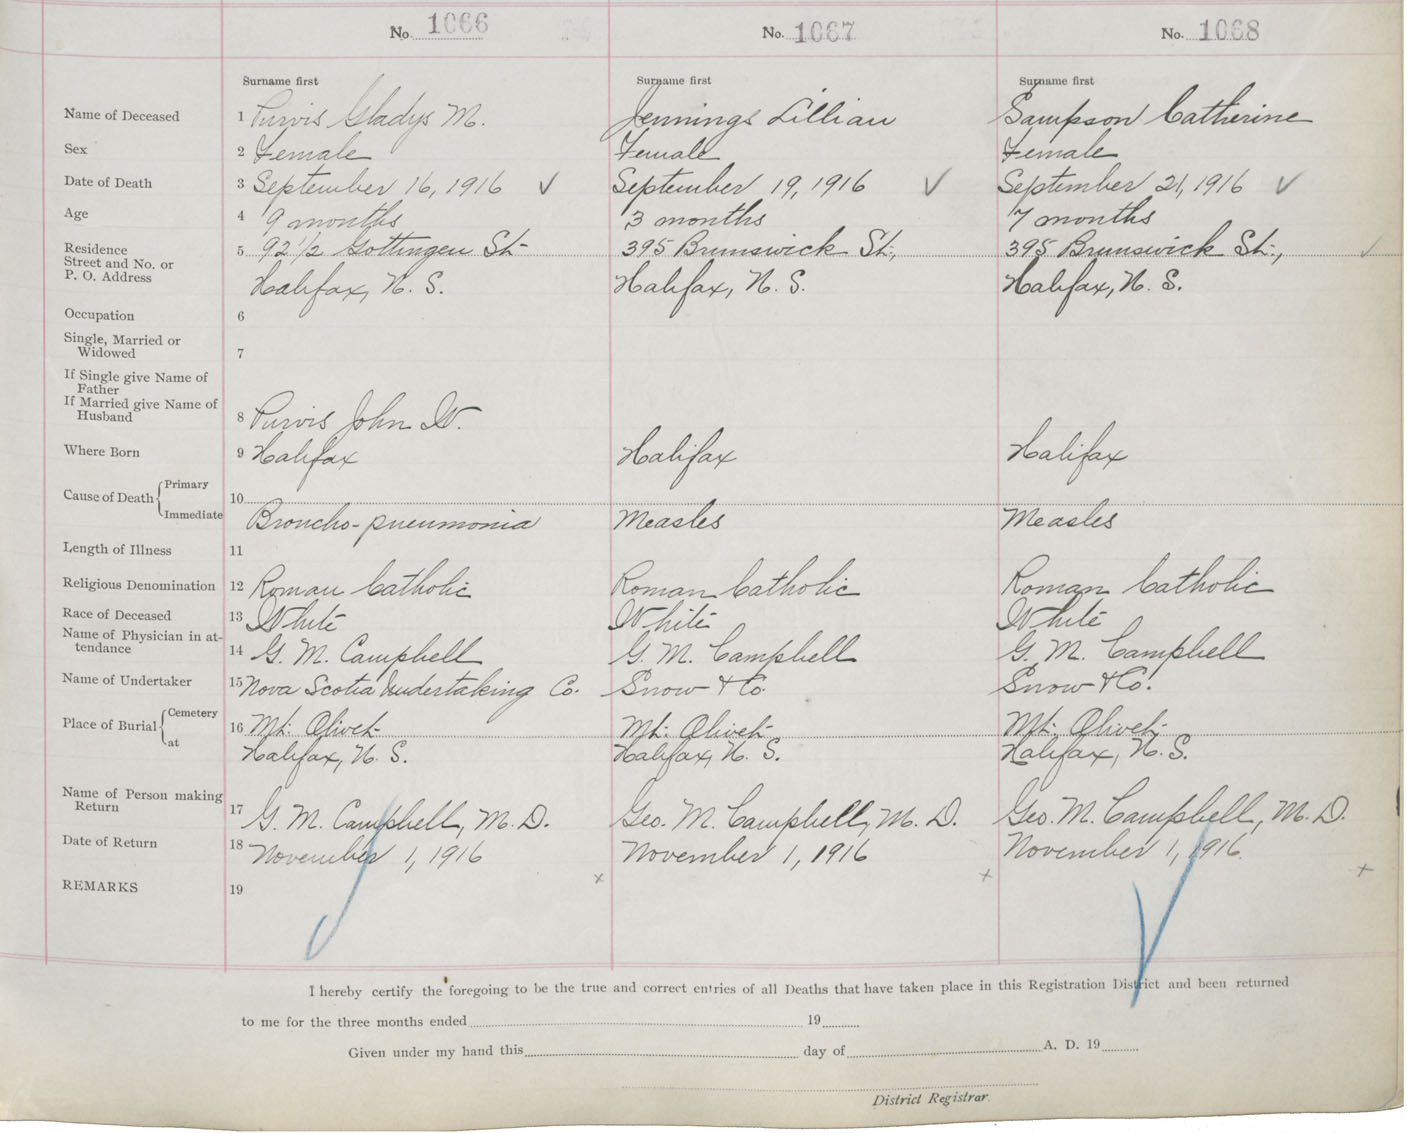 No. 1066 No. 1067 No. 1068
Surname first Surname first Surname first
Name of Deceased 1 Purvis Gladys M. Jennings Lillian Sampson Catherine
Sex 2 Female Female Female
Date of Death 3 September 16, 1916 ✓ September 19, 1916 ✓ September 21, 1916 ✓
Age 4 9 months 3 months 7 months
Residence
Street and No. or 5 92 1/2 Gottingen St. 395 Brunswick St., 395 Brunswick St.,
P. O. Address Halifax, N. S. Halifax, N. S. Halifax, N. S.
Occupation 6
Single, Married or
Widowed 7
If Single give Name of
Father
If Married give Name of
Husband 8 Purvis John W.
Where Born 9 Halifax Halifax Halifax
Cause of Death Primary 10
Immediate Broncho-pneumonia Measles Measles
Length of Illness 11
Religious Denomination 12 Roman Catholic Roman Catholic Roman Catholic
Race of Deceased 13 White White White
Name of Physician in at-
tendance 14 G. M. Campbell G. M. Campbell G. M. Campbell
Name of Undertaker 15 Nova Scotia Undertaking Co. Snow & Co. Snow & Co.
Place of Burial Cemetery 16 Mt. Olivet Mt. Olivet Mt. Olivet
at Halifax, N. S. Halifax, N. S. Halifax, N. S.
Name of Person making
Return 17 G. M. Campbell, M. D. Geo. M. Campbell, M. D. Geo. M. Campbell, M. D.
Date of Return 18 November 1, 1916 November 1, 1916 November 1, 1916
REMARKS 19
I hereby certify the foregoing to be the true and correct entries of all Deaths that have taken place in this Registration District and been returned
to me for the three months ended 19
Given under my hand this day of A. D. 19
District Registrar.